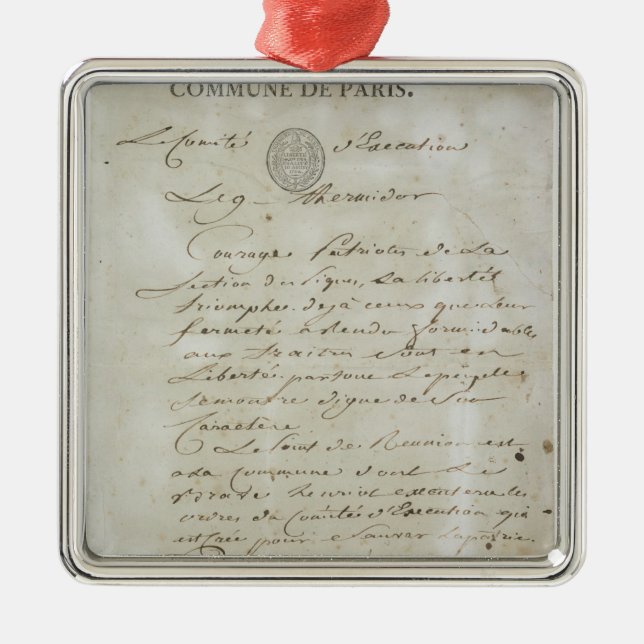 COMMUNE DE PARIS.
Le Comité d'Execution
Le 9 thermidor
Courage Patriotes de La
Section des Piques, La liberté
triomphe. deja ceux que Leur
fermeté a rendu formidables
aux traitres sont en
Liberté. partout Le peuple
se montre digne de Son
Caractère
Le Point de Reunion est
a La Commune dont Le
brave henriot executera les
ordres du Comité d'Execution qui
est Créé pour Sauver La patrie.